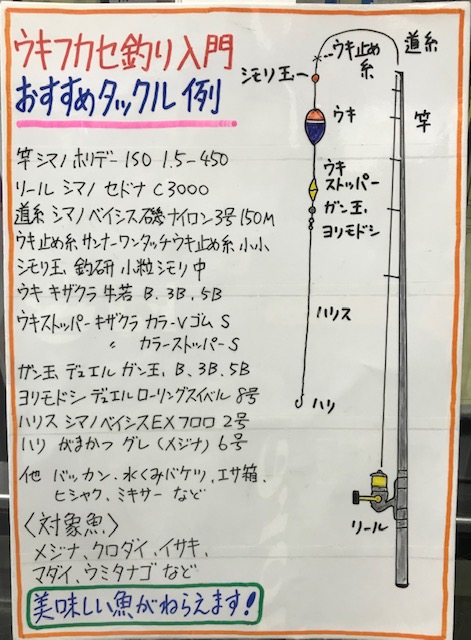 ウキフカセ釣り入門
おすすめタックル例
竿 シマノ ホリデー ISO 1.5-450
リール シマノ セドナ C3000
道糸 シマノ ベイシス磯ナイロン3号150M
ウキ止め糸 サンナーワンタッチウキ止め糸 小小
シモリ玉 釣研 小粒シモリ 中
ウキ キザクラ 牛若 B、3B、5B
ウキストッパー キザクラ カラーVゴム S
〃 カラーストッパーS
ガン玉 デュエル ガン玉 B、3B、5B
ヨリモドシ デュエル ローリングスイベル 8号
ハリス シマノベイシスEXフロロ 2号
ハリ がまかつ グレ(メジナ)6号
他 バッカン、水くみバケツ、エサ箱、
ヒシャク、ミキサー など
〈対象魚〉
メジナ、クロダイ、イサキ、
マダイ、ウミタナゴ など
美味しい魚がねらえます!
ウキ止め
糸
道糸
シモリ玉
ウキ
竿
ウキ
ストッパー
ガン玉
ヨリモドシ
ハリス
ハリ
リール